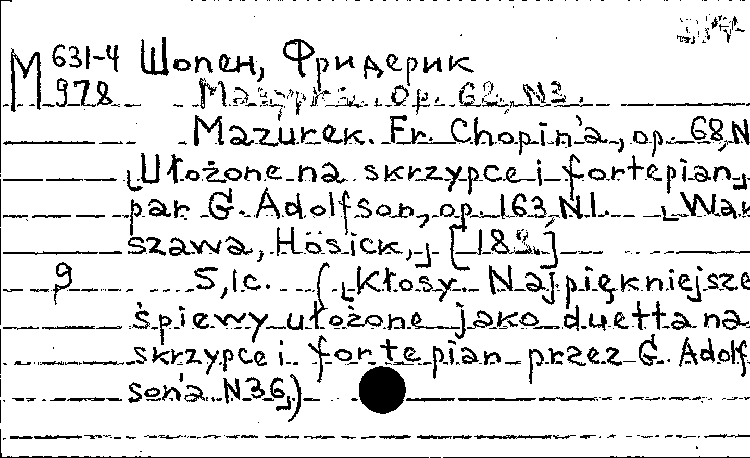 М 631-4 Шопен, Фридерик
978 Мазурка. Op. 68, N3.
Mazurek. Fr. Chopin'a, op. 68, N
⌊Ułożone na skrzypce i fortepian⌋
par G. Adolfson, op. 163, N1. ⌊War
szawa, Hösick,⌋ [188.]
9 5, 1 с. (⌊Kłosy. Najpiękniejsze
śpiewy ułożone jako duetta na
skrzypce i fortepian przez G. Adolf
son'a. N36⌋)